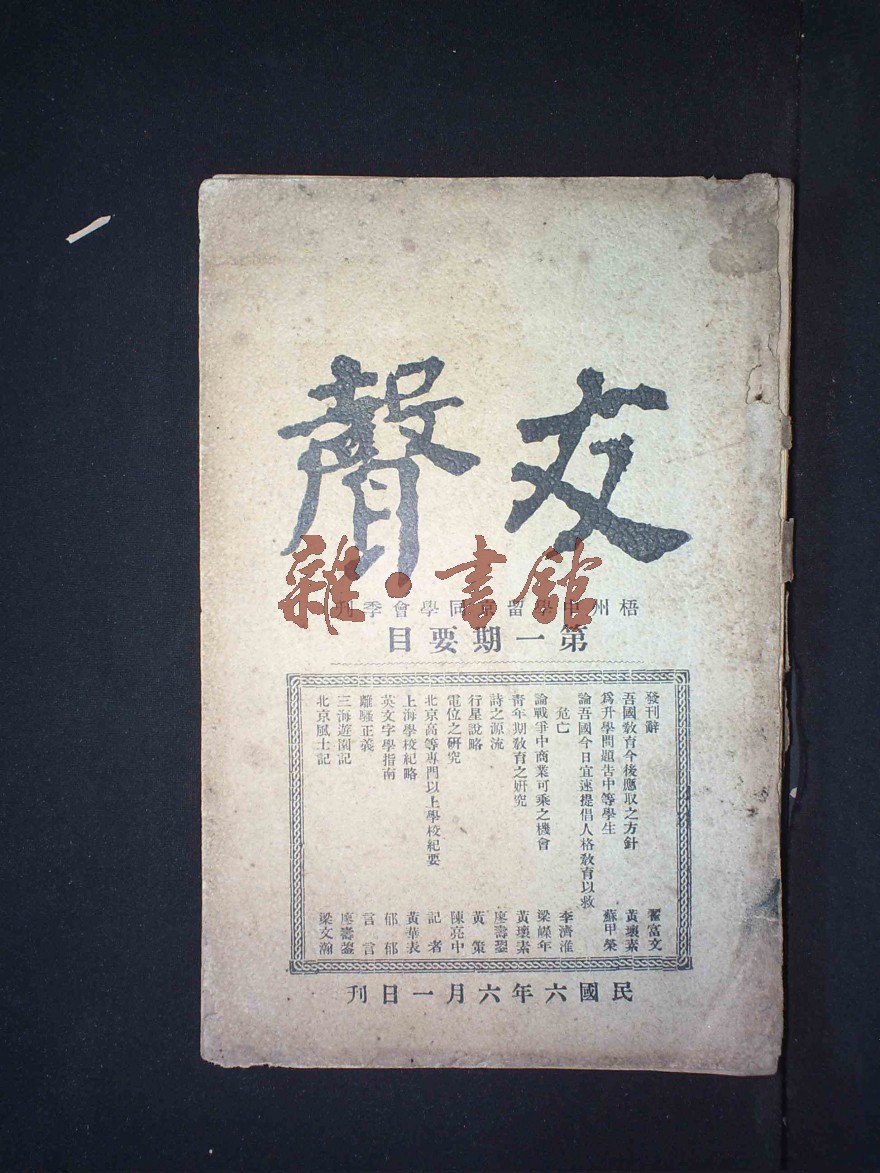 友聲
雜·書館
梧州中學留京同學會季刊
第一期要目
發刊辭 翟富文
吾國教育今後應取之方針 黃瓌素
爲升學問題告中等學生 蘇甲榮
論吾國今日宜速提倡人格教育以救
危亡 李濟淮
論戰爭中商業可乘之機會 梁嶸年
靑年期敎育之研究 黃瓌素
詩之源流 廖壽
行星說略 黃策
電位之研究 陳亮中
北京高等專門以上學校紀要 記者
上海學校紀略 黃華表
英文字學指南 郁郁
離騷正義 言言
三海遊園記 廖壽
北京風土記 梁文瀚
民國六年六月一日刊